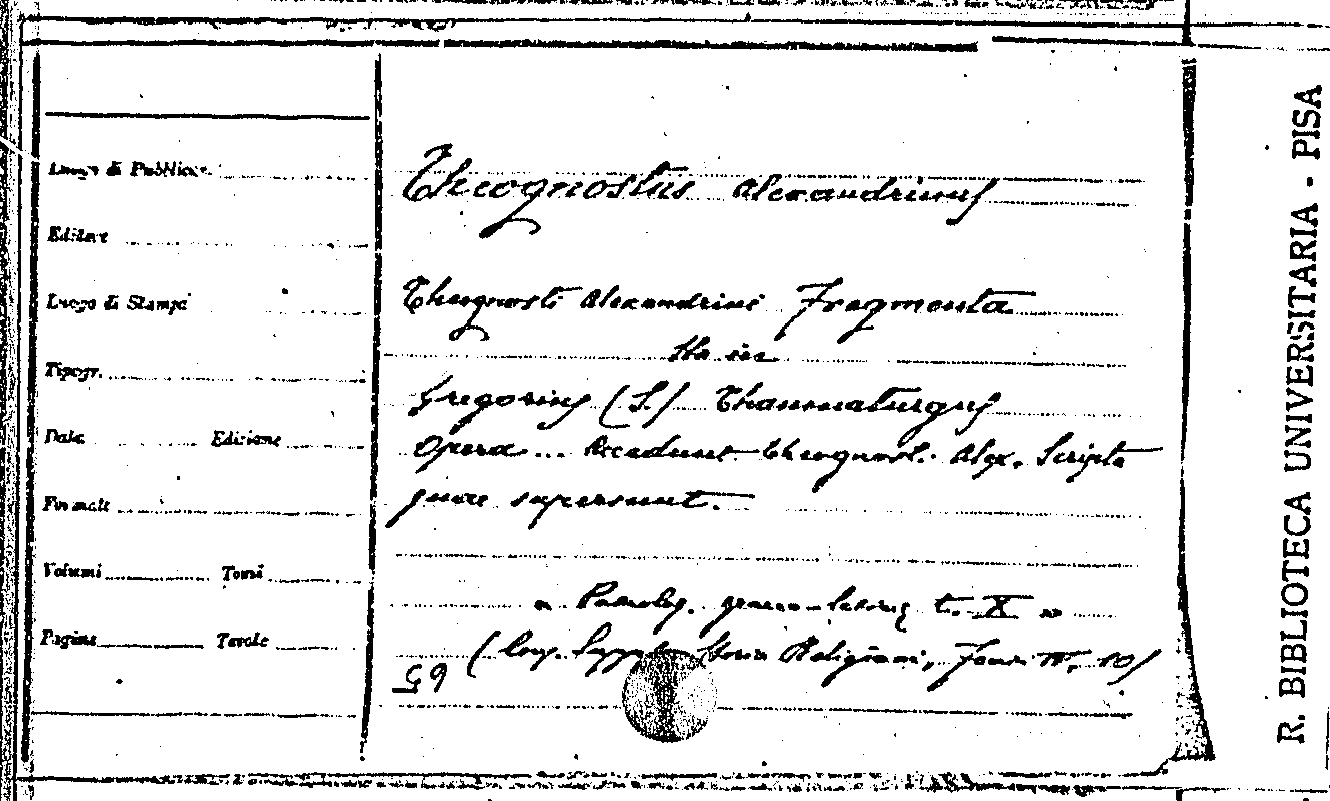 Luogo di Pubblicaz.
Editore
Luogo di Stampa
Tipogr.
Data Edizione
Formato
Volumi Tomi
Pagine Tavole
Theognostus Alexandrinus
Theognosti Alexandrini Fragmenta
Sta in
Gregorius (S.) Thaumaturgus
Opera... Accedunt Theognost. Alex. Scripta
quae supersunt.
« Patrolog. graeco-latinae t. X »
Storia Religioni, Fonti IV, 10)
59
R. BIBLIOTECA UNIVERSITARIA - PISA